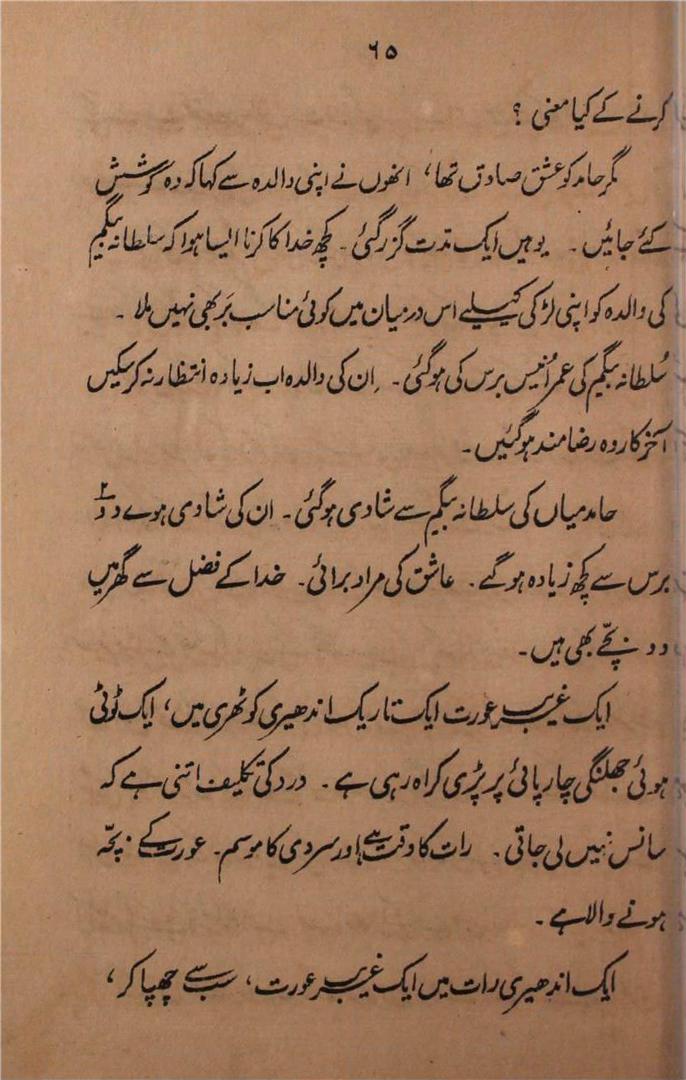 ۶۵
کرنے کے کیا معنی ؟
مگر حامد کو عشق صادق تھا، انھوں نے اپنی والدہ سے کہا کہ وہ کوشش
کئے جائیں ۔ یوہیں ایک مدت گزر گئی ۔ کچھ خدا کا کرنا ایسا ہوا کہ سلطانہ بیگم
کی والدہ کو اپنی لڑکی کیلئے اس درمیان میں کوئی مناسب بَر بھی نہیں ملا ۔
سُلطانہ بیگم کی عمر اُنّیس برس کی ہوگئی ۔ اِن کی والدہ اب زیادہ انتظار نہ کر سکیں
آخر کار وہ رضامند ہوگئیں ۔
حامد میاں کی سلطانہ بیگم سے شادی ہوگئی ۔ ان کی شادی ہوے دو
برس سے کچھ زیادہ ہوگئے ۔ عاشق کی مراد برائی ۔ خدا کے فضل سے گھر میں
دو بچّے بھی ہیں ۔
ایک غریب عورت ایک تاریک اندھیری کوٹھری میں، ایک ٹوٹی
ہوئی جھلنگی چارپائی پر پڑی کراہ رہی ہے ۔ درد کی تکلیف اتنی ہے کہ
سانس نہیں لی جاتی ۔ رات کا وقت ہے اور سردی کا موسم ۔ عورت کے بچّہ
ہونے والا ہے ۔
ایک اندھیری رات میں ایک غریب عورت، سب سے چھپا کر،